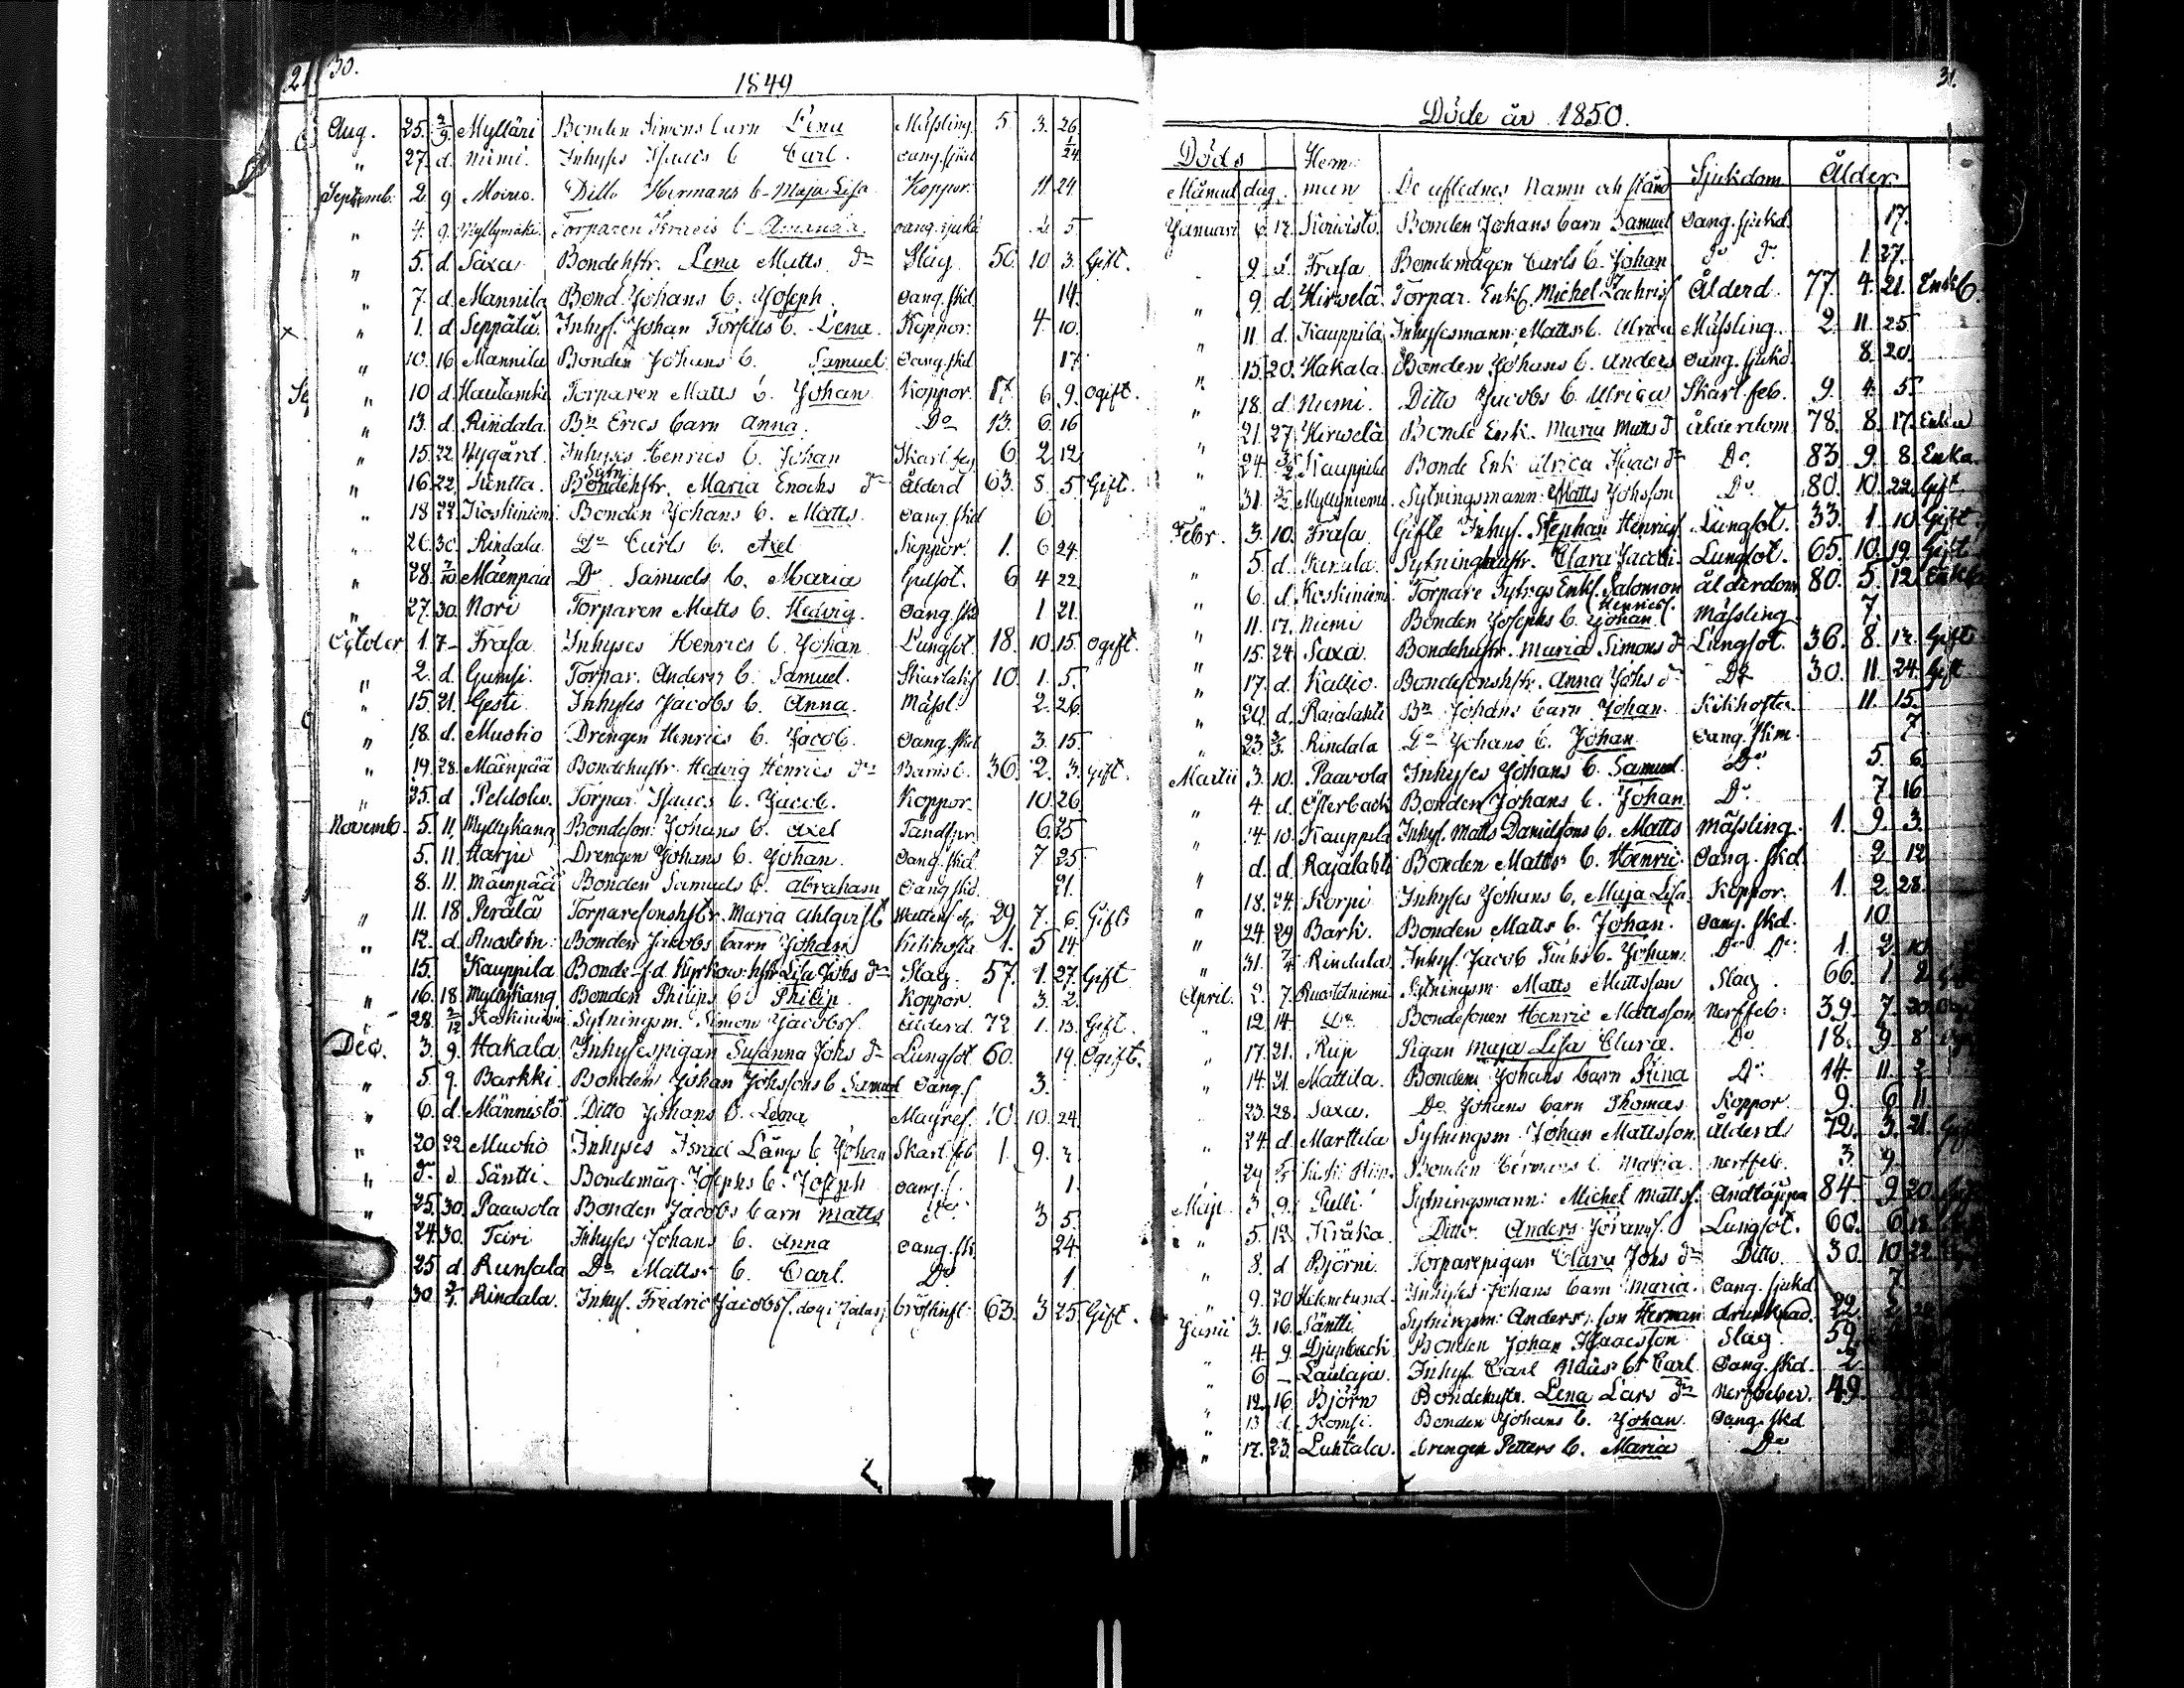 30.
1849
Aug. 25. 2/9 Mylläri Bonden Simons barn Lena Mässling. 5. 3. 26.
" 27. d. Niemi. Inhyses Isaacs b. Carl. oang. sjukd 1/24
Septemb. 2. 9 Moirio. Ditto Hermans b. Maja Lisa Koppor. 11 24
" 4. 9. Myllymäki. Torparen b. Amanda oang. sjukd 5.
" 5. d. Saxa Bondehstr. Lena Matts dr Slag 50. 10 3. Gift.
" 7. d. Mannila Bond. Johans b. Joseph. oang. skd. 14.
" 1. d Seppälä. Inhys. Johan b. Lena. Koppor. 4. 10.
" 10. 16 Mannila Bonden Johans b. Samuel oang. skd 17.
" 10 d Hautamäki Torparen Matts b. Johan Koppor. 17. 6 9. ogift.
" 13. d. Rindala. Bn Erics barn Anna. Do 13. 6. 16
" 15. 22 Nygård. Inhyses Henrics b. Johan Skarl. feb 6 2 12
" 16. 22. Süntta. Sytn. Bondehstr. Maria Enochs dr ålderd 63. 8. 5. Gift.
" 18 22 Koskiniemi Bonden Johans b. Matts. oang. skd 6.
" 26. 30. Rindala Do Carls b. Axel Koppor. 1. 6 24.
" 28. 7/10 Mäenpää Do Samuels b. Maria Gulsot. 6 4 22
" 27. 30. Nori Torparen Matts b. Hedvig. oang. skd 1 21.
October 1. 7 Frasa. Inhyses Henrics b. Johan Lungsot. 18. 10. 15. ogift.
" 2. d. Gumsi. Torpar. Anders b. Samuel. Skarlaks 10. 1. 5.
" 15. 21. Gesti. Inhyses Jacobs b. Anna. Mässl. 2. 26.
" 18. d. Muotio Drengen Henrics b. Jacob. oang. skd 3. 15.
" 19. 28. Mäenpää Bondehustr. Hedvig Henrics dr Barns b. 36. 2. 3. Gift.
" 25. d Peldola. Torpar. Isaacs b. Jacob. Koppor. 10. 26.
Novemb. 5. 11. Myllykang Bondeson Johans b. Axel Tandspr. 6. 25
5. 11. Harju Drengen Johans b. Johan. oang. skd. 7 25.
8. 11. Mäenpää Bonden Samuels b. Abraham oang skd. 21.
" 11. 18 Perälä Torparesonshstr. Maria Ahlqvist 29 7. 6. Gift
" 12. d. Ruostein. Bonden Jacobs barn Johan Kikhosta 1. 5 14.
15. Kauppila Bonde fd. Kyrkow. hstr Lisa Johs dr Slag. 57. 1. 27. Gift
" 16. 18. Myllykang. Bonden Philips b. Philip. Koppor. 3. 2.
" 28. 2/12 Koskiniemi Sytningsm. Simon Jacobs. ålderd. 72 1. 13. Gift.
Dec. 3. 9. Hakala. Inhysespigan Susanna Johs dr Lungsot 60. 19. Ogift.
" 5. 9. Barkki. Bonden Johan Johssons b Samuel oang. s 3.
" 6. d. Männistö Ditto Johans b. Lena Magref. 10. 10. 24.
" 20 22 Muotio Inhyses Israel Långs b Johan Skarl. feb 1. 9.
" d. Säntti. Bondemåg Josephs b. Joseph oang. s. 1.
" 25. 30. Paawola Bonden Jacobs barn Matts do 3 5.
24. 30. Tairi Inhyses Johans b. Anna oang. sk. 24.
25 d Runsala Do Matts b. Carl. Do 1.
" 30 2/1. Rindala. Inhys. Fredric Jacobss. Bröstinfl. 63. 3 25. Gift.
31.
Döde år 1850.
Döds Hem
Månad dag. man De aflednes Namn och stånd Sjukdom Ålder.
Januari 6. 12. Koivisto. Bonden Johans barn Samuel oang. sjukd. 17.
9. d. Frasa Bondemågen Carls b. Johan do do 1. 27.
" 9. d. Hirvelä. Torpar. Enkl. Michel Zachriss Ålderd. 77. 4. 21. Enkl.
" 11. d. Kauppila Inhysesmann: Matts b. Ulrica Mässling. 2. 11. 25
" 15. 20. Hakala. Bonden Johans b. Anders oang. sjukd. 8. 20.
" 18. d. Niemi. Ditto Jacobs b. Ulrica Skarl. feb. 9. 4. 5.
" 21. 27. Hirvelä Bonde Enk. Maria Matts d ålderdom 78. 8. 17. Enka
" 24. 3/2 Kauppila Bonde Enk Ulrica Isaacs dr Do 83. 9. 8. Enka.
" 31. 3/2. Myllyniemi. Sytningsmann: Matts Johsson Do. 80. 10. 22. Gift.
Febr. 3. 10. Frasa. Gifte Inhys. Stephan Henriss Lungsot. 33. 1. 10. Gift.
" 5. d. Sytninghustr. Clara Jacobs Lungsot. 65. 10. 19. Gift
" 6. d. Koskiniemi Torpare Sytngs Enkl. Salomon Henriss. ålderdom 80. 5. 12. Enkl.
" 11. 17. Niemi Bonden Josephs b. Johan Mässling 7.
" 15. 24. Saxa. Bondehustr. Maria Simons d Lungsot. 36. 8. 12. Gift
" 17. d. Kallio. Bondesonshstr. Anna Johs d Do 30. 11. 24. Gift
" 20. d. Rajalahti Bn Johans barn Johan. Kikhosta. 11. 15.
" 23 3/3. Rindala Do Johans b. Johan oang. skim. 7.
Martii 3. 10. Paavola Inhyses Johans b. Samuel. Do 5. 6.
" 4. d. Österback Bonden Johans b. Johan Do 7. 16
" 4. 10. Kauppila Inhys. Matts Danielssons b. Matts Mässling. 1. 9. 3.
" d. d. Rajalahti Bonden Matts b. Henric. oang. skd 2 12
" 18. 24. Korpi Inhyses Johans b. Maja Lisa Koppor. 1. 2. 28.
" 24. 29 Bark. Bonden Matts b. Johan. oang. skd. 10.
" 31. 7/4 Rindala Inhys. Jacob b. Johan. Do Do. 1. 2. 10
April. 2. 7. Ruostetniemi Sytningsm. Matts Mattsson Slag. 66. 1 2
" 12 14 Do Bondesonen Henric Mattsson Nerffeb. 39. 7. 20.
" 17. 21. Riip Pigan Maja Lisa Do 18. 9 8
" 14. 21. Mattila. Bonden Johans barn Stina Do 14. 11. 3
23. 28. Saxa. Do Johans barn Thomas Koppor. 9. 6 11
" 24. d. Marttila Sytningsm. Johan Mattsson. ålderd 72. 3. 21.
29 Bonden b. Maria. Nerffeb. 3 9.
Maji 3 9. Pulli. Sytningsmann: Michel Mattss. Andtäppa 84. 9 20.
" 5. 12. Kråka. Ditto Anders Lungsot. 60. 6 18
" 8. d Björni. Torparepigan Clara Johs dr Ditto. 30. 10 22
" 9. 20 Inhyses Johans barn Maria. oang. sjukd. 7.
Junii 3. 16. Säntti. Sytningsm: Anders son Herman drunknad. 22
" 4. 9. Djupback Bonden Johan Isaacsson Slag 59.
" 6 – Lautaja. Inhys. Carl b. Carl. oang. skd. 2
" 12. 16. Björn Bondehustr. Lena Lars dr Nerffeber. 49.
" 13 d. Komsi. Bonden Johans b. Johan. oang. skd
" 17. 23. Luhtala. Drengen Petters b. Maria Do